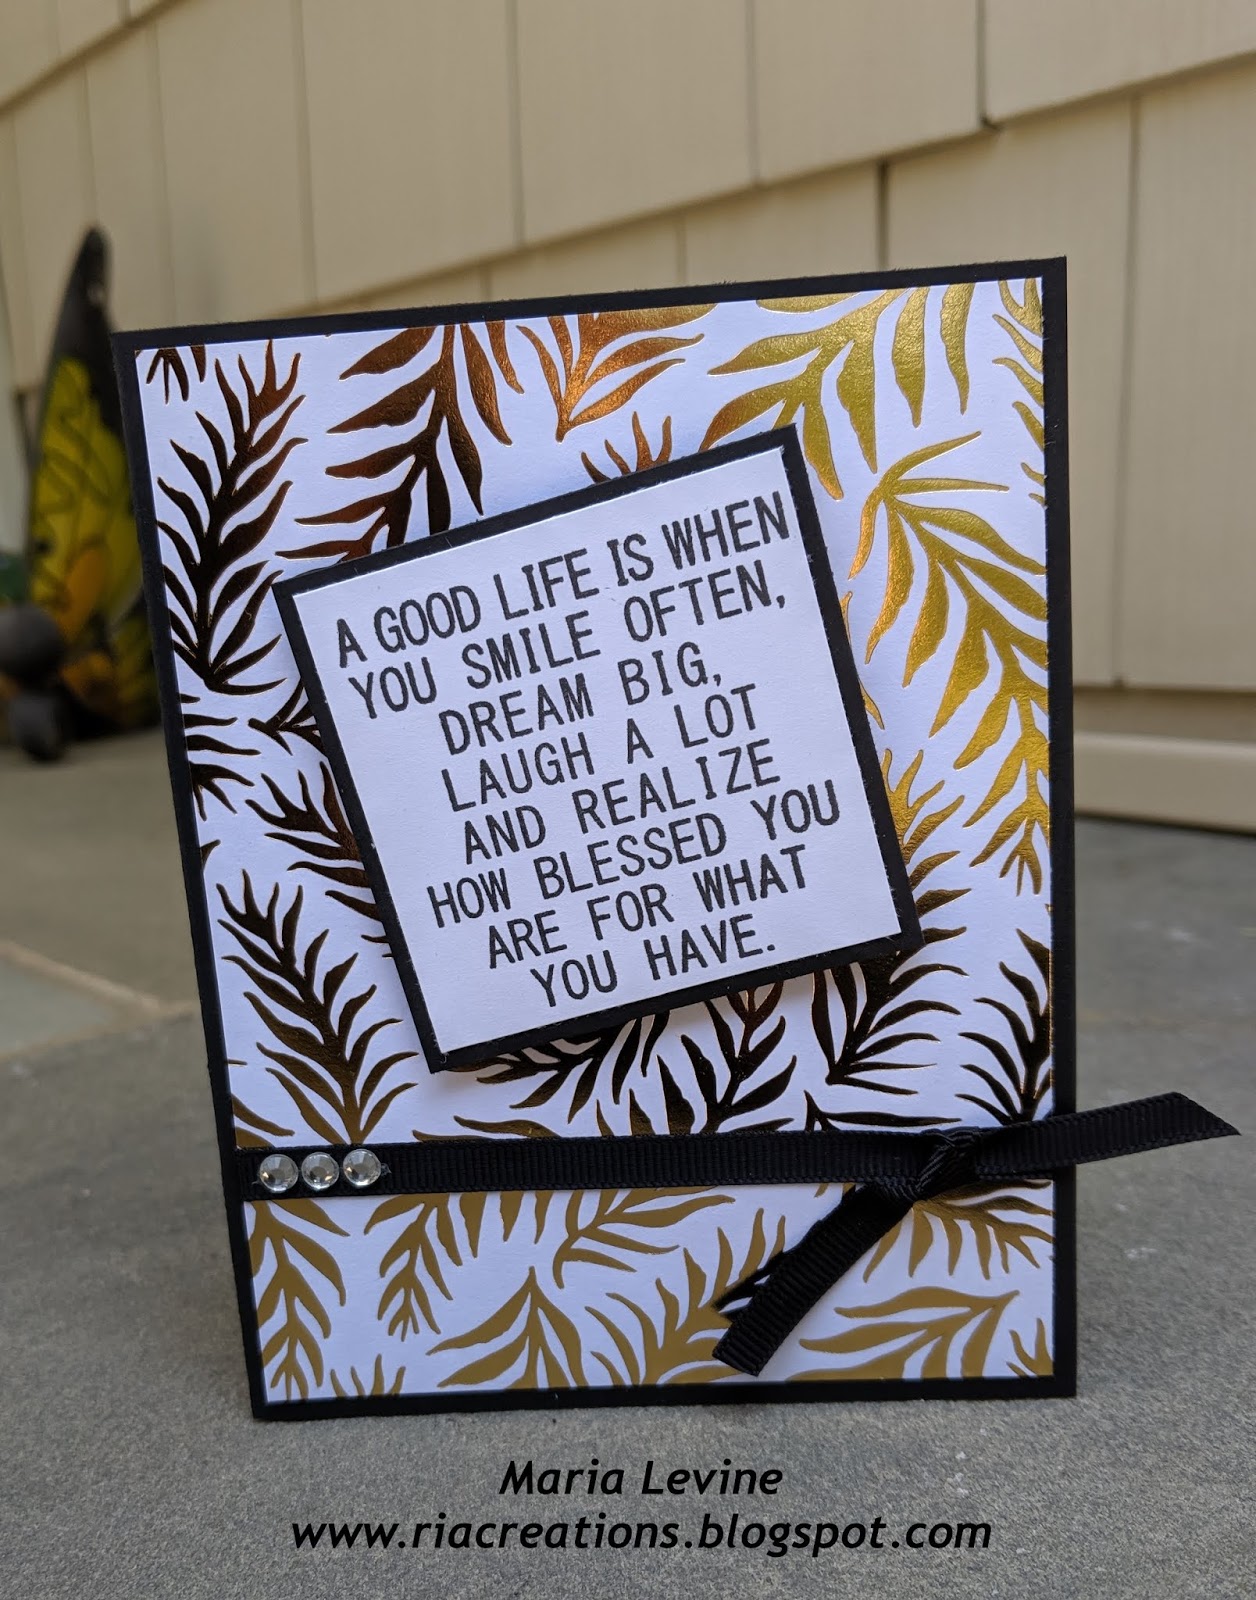 A GOOD LIFE IS WHEN
YOU SMILE OFTEN,
DREAM BIG,
LAUGH A LOT
AND REALIZE
HOW BLESSED YOU
ARE FOR WHAT
YOU HAVE.
Maria Levine
www.riacreations.blogspot.com